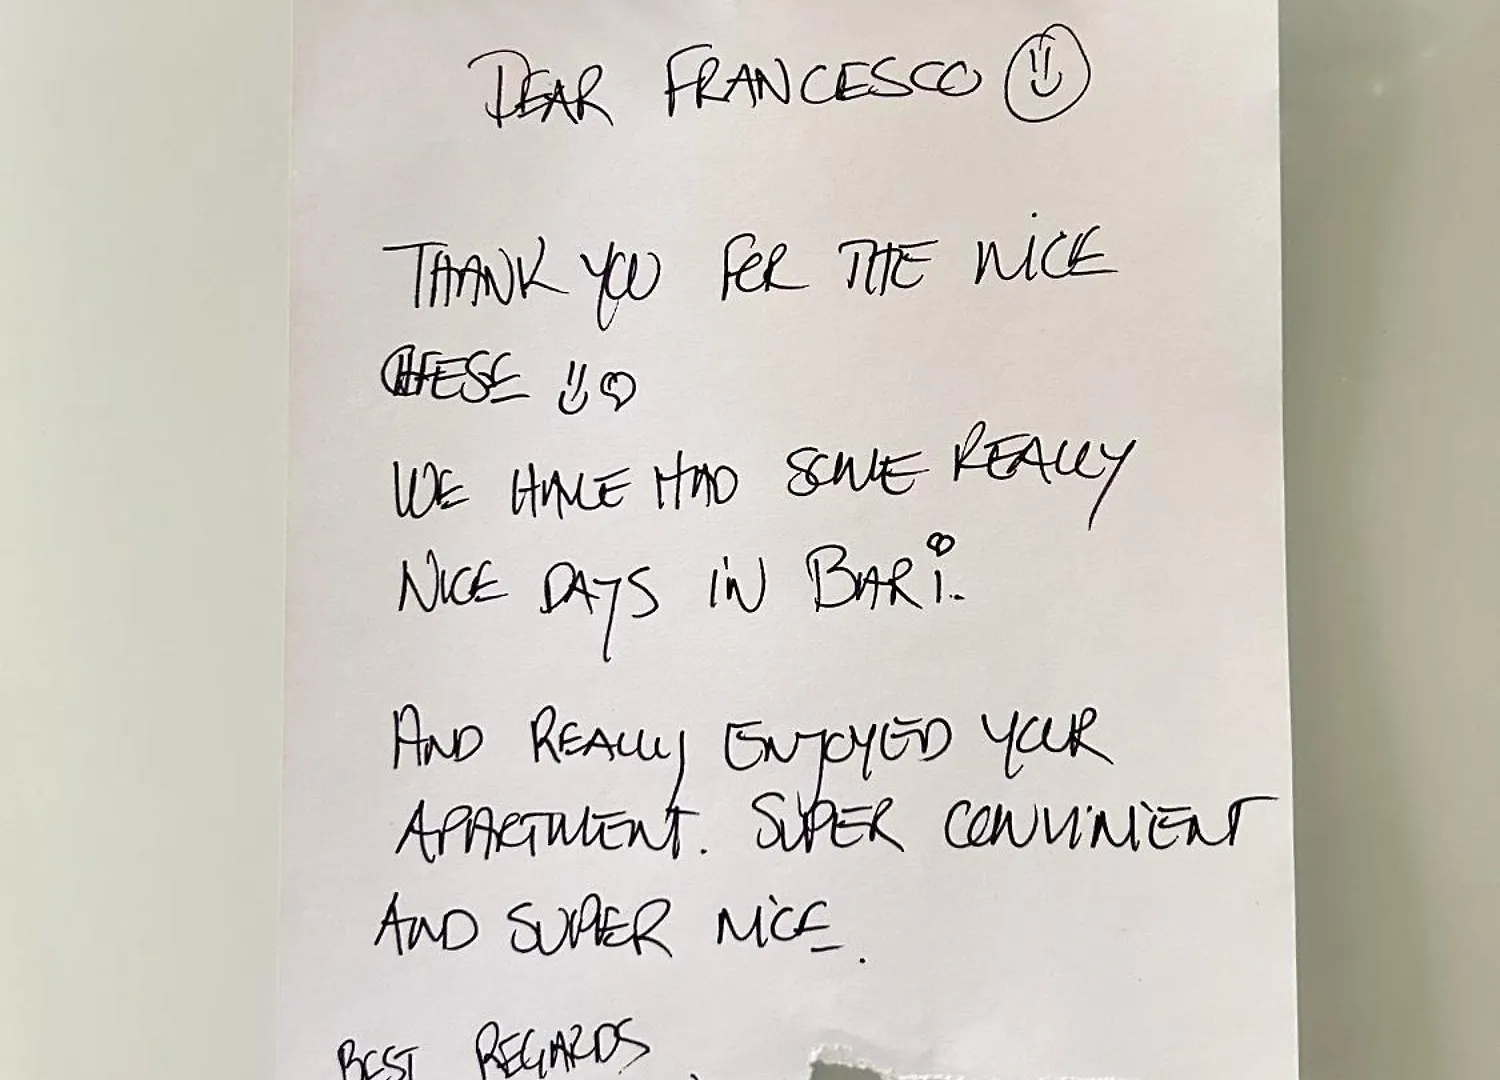 DEAR FRANCESCO
THANK YOU FOR THE NICE
CHEESE
WE HAVE HAD SOME REALLY
NICE DAYS IN BARI.
AND REALLY ENJOYED YOUR
APARTMENT. SUPER CONVINIENT
AND SUPER NICE.
BEST REGARDS